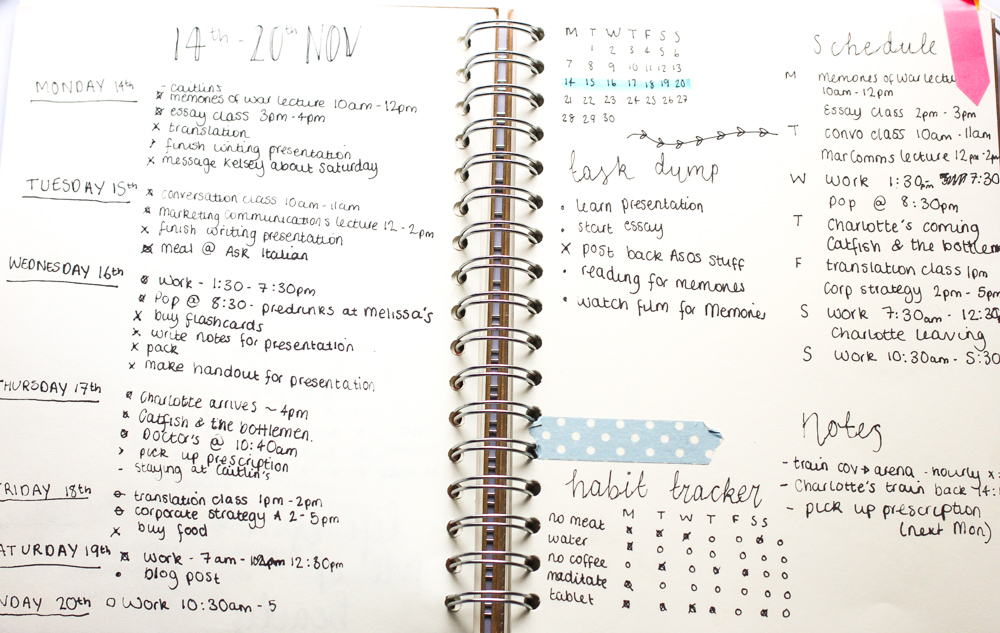 14th - 20th NOV
MONDAY 14th
- caitlin's
memories of war lecture 10am - 12pm
essay class 3pm - 4pm
x translation
finish writing presentation
x message kelsey about saturday
TUESDAY 15th
x conversation class 10am - 11am
marketing communications lecture 12 - 2pm
x finish writing presentation
meal @ Ask Italian
WEDNESDAY 16th
work - 1:30 - 7:30pm
Pop @ 8:30 - predrinks at melissa's
x buy flashcards
x write notes for presentation
x pack
x make handout for presentation
HURSDAY 17th
Charlotte arrives ~ 4pm
Catfish & the bottlemen.
Doctor's @ 10:40am
> pick up prescription
- staying at caitlin's
FRIDAY 18th
translation class 1pm - 2pm
corporate strategy 2 - 5pm
x buy food
ATURDAY 19th
work - 7am - 12:30pm
• blog post
NDAY 20th
Work 10:30am - 5
M T W T F S S
1 2 3 4 5 6
7 8 9 10 11 12 13
14 15 16 17 18 19 20
21 22 23 24 25 26 27
28 29 30
task dump
• learn presentation
• start essay
x post back ASOS stuff
• reading for memories
• watch film for Memories
habit tracker
M T W T F S S
no meat
water
no coffee
meditate
tablet
Schedule
M memories of war lectu
10am - 12pm
Essay class 2pm - 3pm
T convo class 10am - 11am
Mar Comms lecture 12pm - 2pm
W work 1:30pm 7:30
Pop @ 8:30pm
T Charlotte's coming
Catfish & the bottlemen
F translation class 1pm
Corp strategy 2pm - 5pm
S work 7:30am - 12:30p
Charlotte leaving
S work 10:30am - 5:30
Notes
- train cov → arena - hourly x
- Charlotte's train back - 14:
- pick up prescription
(next Mon)